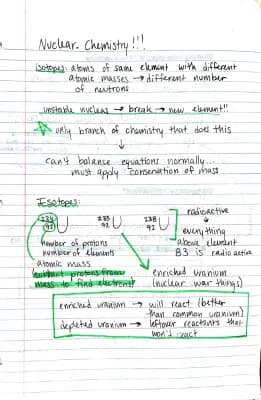 Nuclear Chemistry!!!
isotopes: atoms of same element with different
atomic masses → different number
of neutrons
unstable nucleus → break → new element!!
only branch of chemistry that does this
↓
can't balance equations normally...
must apply conservation of mass
Isotopes:
234 92 U 235 92 U 238 92 U
radioactive
↓
everything
above element
83 is radioactive
number of protons
number of elements
atomic mass
subtract protons from
mass to find electrons!
enriched uranium
(nuclear war things)
enriched uranium → will react (better
than common uranium)
depleted uranium → leftover reactants that
won't react